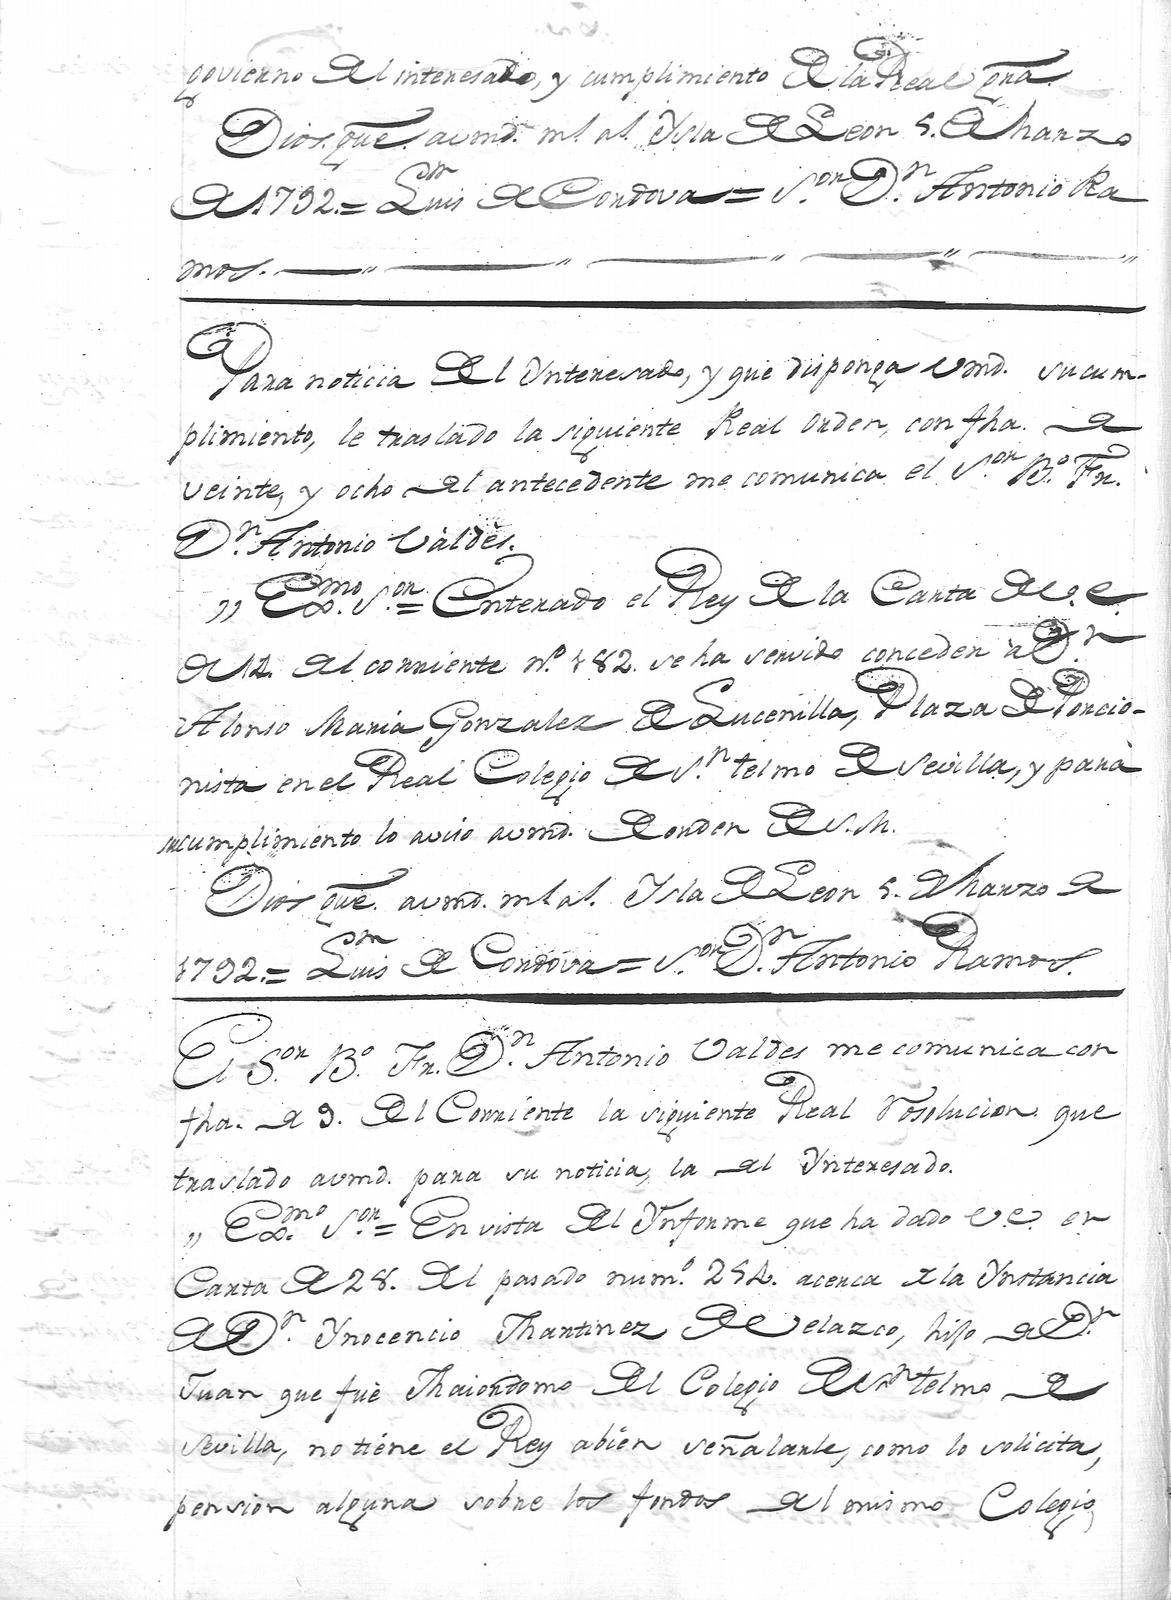 govierno del interesado, y cumplimiento de la Real grã.
Dios. gũe. avmd. ml. al. Ysla de Leon 5. de Marzo
de 1792.= Luis de Cordova = S.or D.n Antonio Ra
mos.
Para noticia del Ynteresado, y que disponga vmd. sucum-
plimiento, le traslado la siguiente Real orden, con fha. de
veinte, y ocho del antecedente me comunica el S.or B.o Fr.
D.n Antonio Valdès.
„ Exmo. S.or = Enterado el Rey de la Carta de V.E.
de 12. del corriente n.o 182. se ha servido conceder à D.n
Alonso Maria Gonzalez de Lucenilla, Plaza de Porcio-
nista en el Real Colegio de S.n telmo de Sevilla, y para
sucumplimiento lo aviso avmd. de orden de S.M.
Dios gũe. avmd. ml. al. Ysla de Leon 5. de Marzo de
1792.= Luis de Cordova = S.or D.n Antonio Ramos.
El S.or B.o Fr. D.n Antonio Valdes me comunica con
fha. de 9. del Corriente la siguiente Real rosolucion que
traslado avmd. para su noticia, la del Ynteresado.
„ Exmo. S.or = En vista del Ynforme que ha dado V.E. en
Carta de 28. del pasado num.o 254. acerca de la Ynstancia
de D.n Ynocencio Martinez de Velazco, hijo de D.n
Juan que fuè Maiordomo del Colegio de S.n telmo de
Sevilla, no tiene el Rey abien señalarle, como lo solicita,
pension alguna sobre los fondos del mismo Colegio